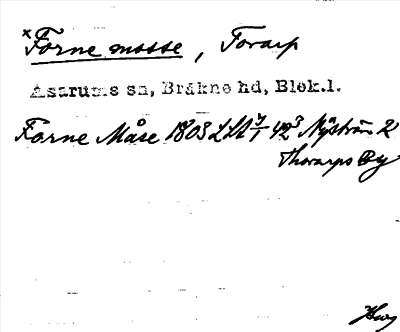 ×Forne mosse, Torarp
Asarums sn, Bräkne hd, Blek.l.
Forne Måse 1803 Nyström
Thorarps By